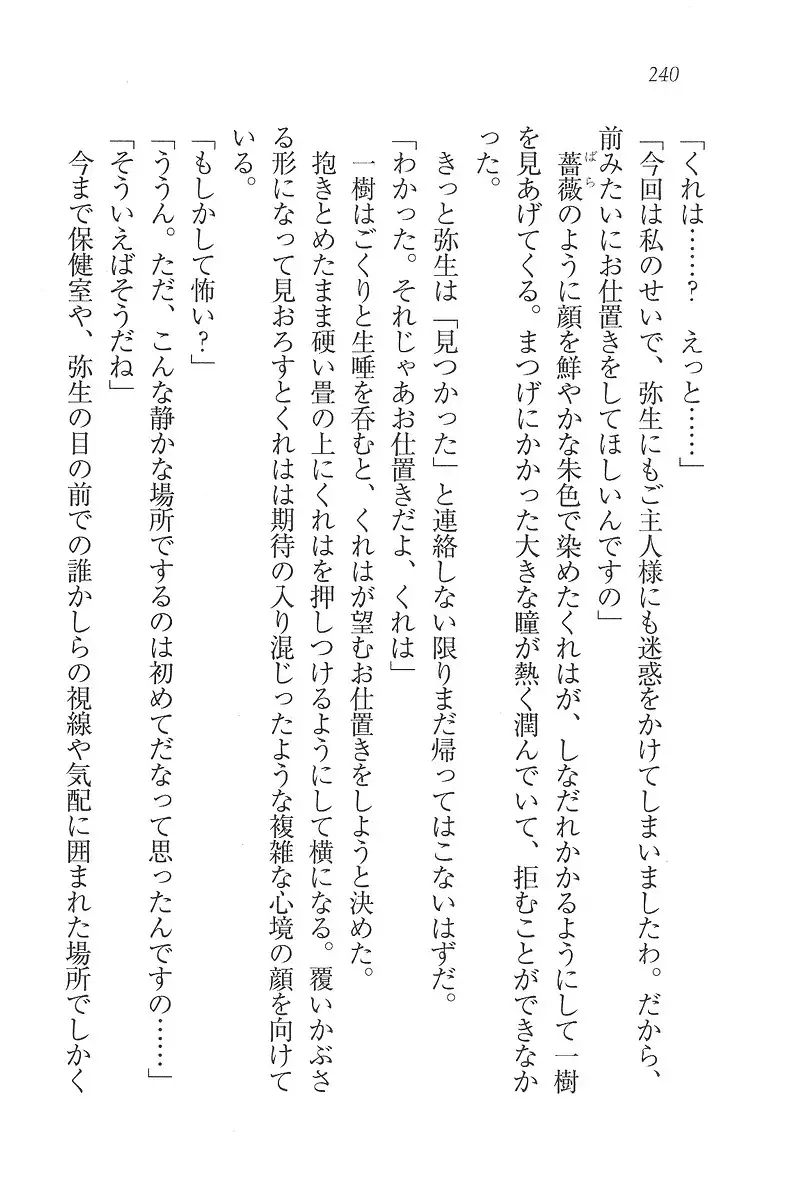 240
「くれは……？　えっと……」
「今回は私のせいで、弥生にもご主人様にも迷惑をかけてしまいましたわ。だから、
前みたいにお仕置きをしてほしいんですの」
薔薇のように顔を鮮やかな朱色で染めたくれはが、しなだれかかるようにして一樹
ばら
を見あげてくる。まつげにかかった大きな瞳が熱く潤んでいて、拒むことができなか
った。
きっと弥生は「見つかった」と連絡しない限りまだ帰ってはこないはずだ。
「わかった。それじゃあお仕置きだよ、くれは」
一樹はごくりと生唾を呑むと、くれはが望むお仕置きをしようと決めた。
抱きとめたまま硬い畳の上にくれはを押しつけるようにして横になる。覆いかぶさ
る形になって見おろすとくれはは期待の入り混じったような複雑な心境の顔を向けて
いる。
「もしかして怖い？」
「ううん。ただ、こんな静かな場所でするのは初めてだなって思ったんですの……」
「そういえばそうだね」
今まで保健室や、弥生の目の前での誰かしらの視線や気配に囲まれた場所でしかく